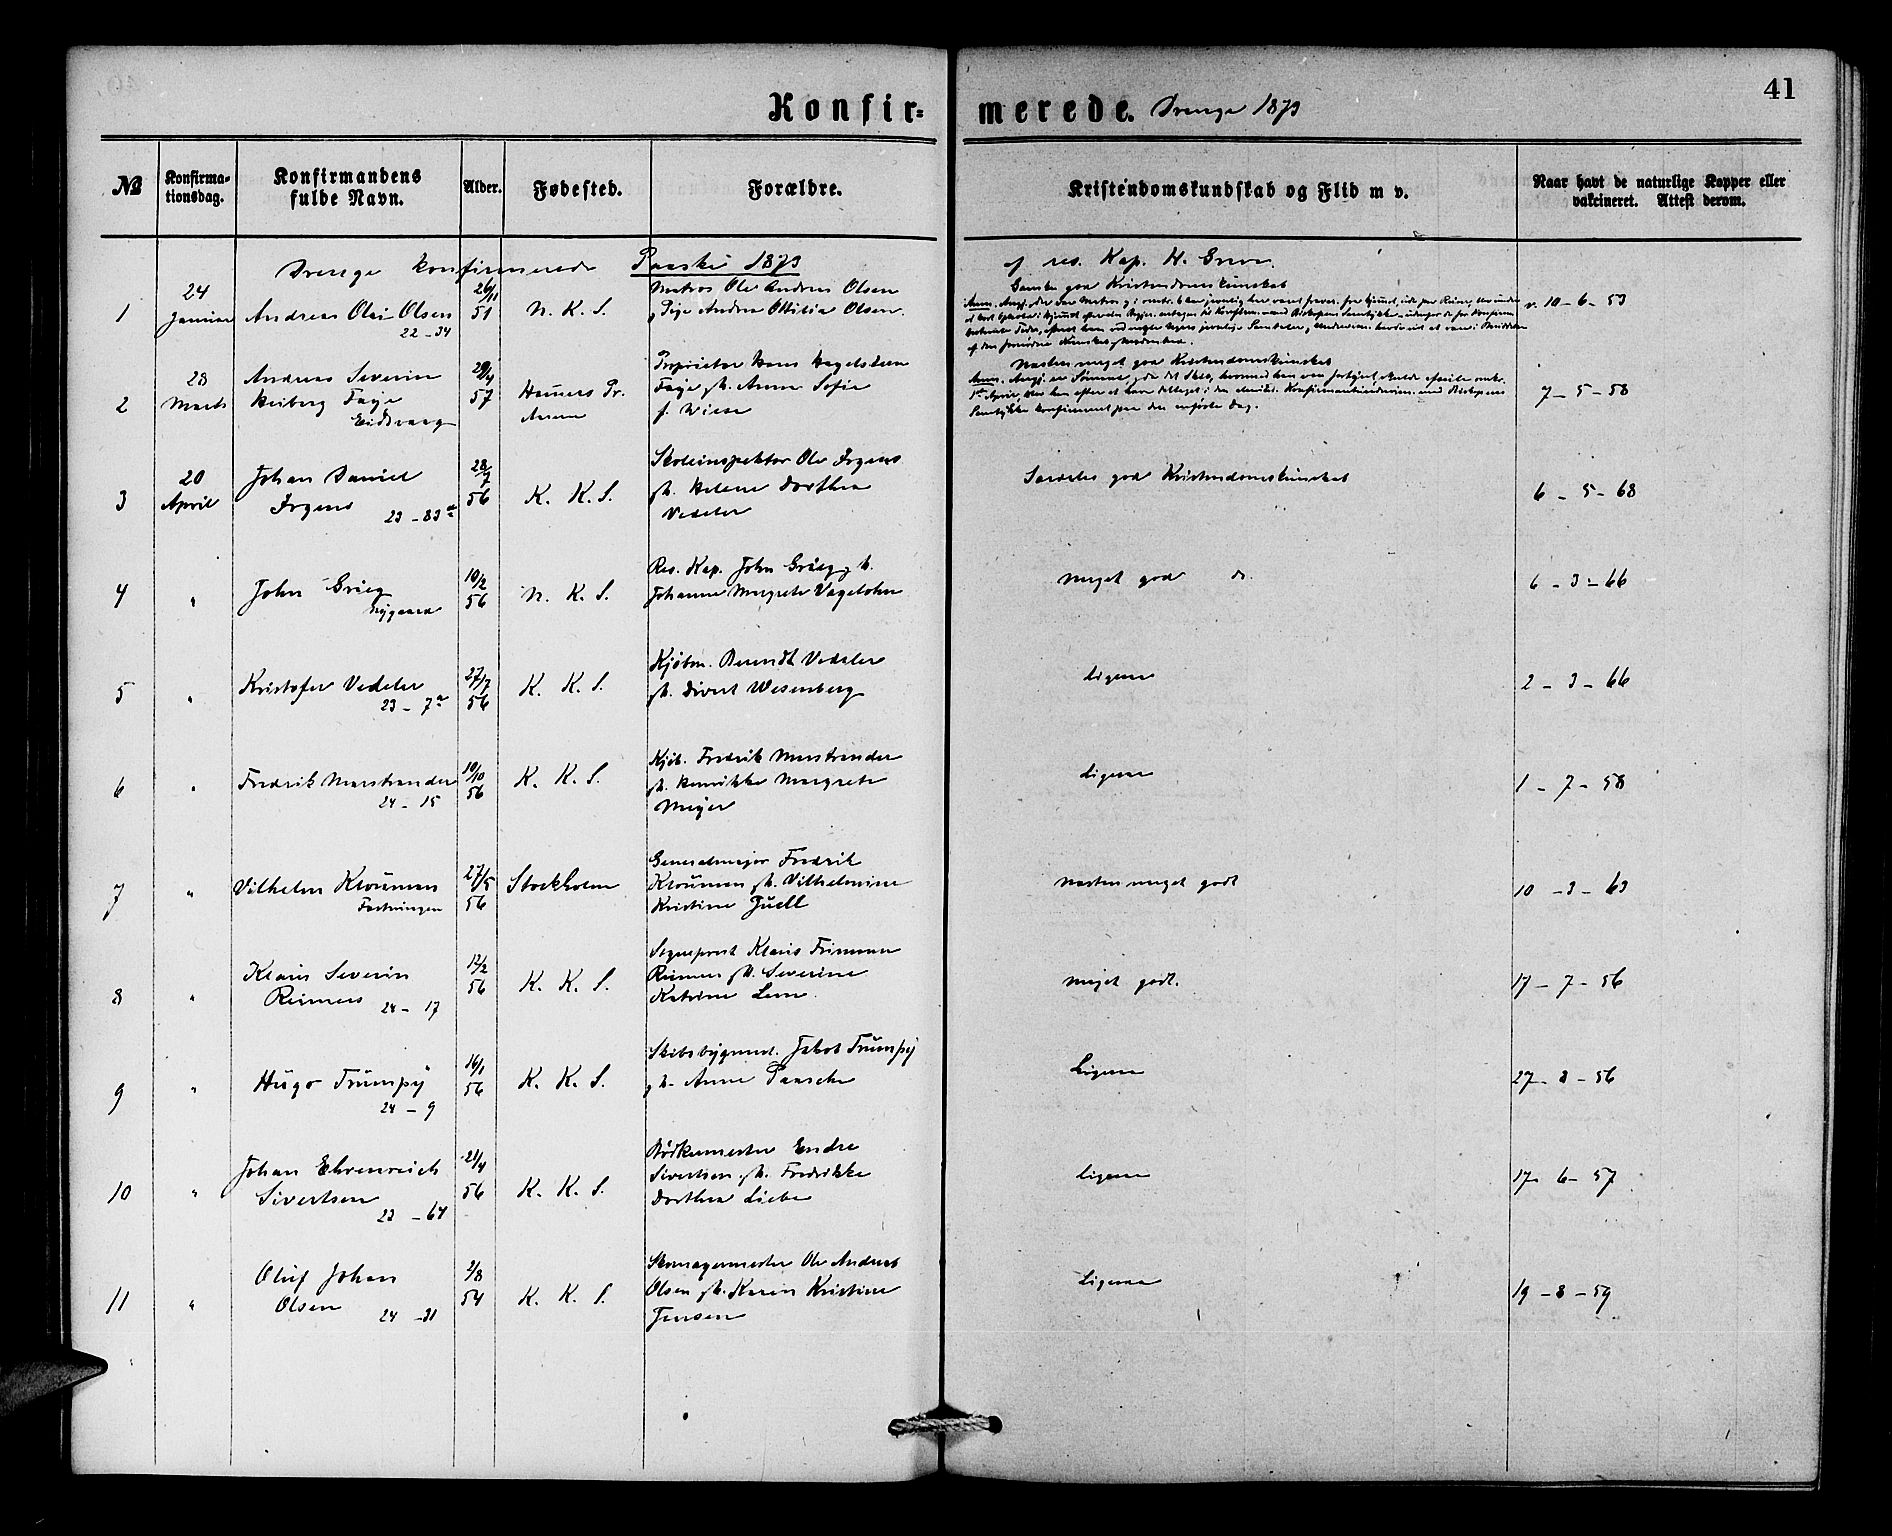 41
Konfir=
merede. Drenge 1873
№
Konfirma-
tionsdag.
Konfirmandens
fulde Navn.
Alder.
Fødested.
Forældre.
Kristendomskundskab og Flid m v.
Naar havt de naturlige Kopper eller
vakcineret. Attest derom.
Drenge konfirmerede Paaske 1873
af res. Kap. H.
1
24
Januar
Andreas Olai Olsen
22 - 34
26/11
51
N. K. S.
Matros Ole Andreas Olsen
Pige Andrea Ottilia Olsen.
Ganske god Kristendomskundskab
v. 10 - 6 - 53
2
28
Marts
Andreas Severin
Heiberg Faye
Eidsvaag
29/4
57
Hammers Pr.
Proprietær Hans Hagelsteen
Faye g h. Anna Sofie
f. Wiese
Næsten meget god Kristendomskundskab
7 - 5 - 58
3
20
April
Johan Daniel
Irgens
23 - 83 a
28/7
56
K. K. S.
Skoleinspektør Ole Irgens
g h. Helene Dorthea
Vedeler
Særdeles god Kristendomskundskab
6 - 5 - 68
4
"
John Grieg
Nygaard
10/2
56
N. K. S.
Res. Kap. John Grieg g h.
Johanne Margrete Vogelsohn
meget god do.
6 - 3 - 66
5
"
Kristofer Vedeler
23 - 7 a
27/7
56
K. K. S.
Kjøbm. Berendt Vedeler
g h. Divert Wesenberg
ligesaa
2 - 3 - 66
6
"
Fredrik Marstrander
24 - 15
10/10
56
K. K. S.
Kjøb. Fredrik Marstrander
g h. Henrikke Margrete
Meyer
ligesaa
1 - 7 - 58
7
"
Vilhelm Klouman
Fæstningen
27/5
56
Stockholm
Generalmajor Fredrik
Klouman g h. Vilhelmine
Kristine Juell
næsten meget godt
10 - 3 - 63
8
"
Klaus Severin
Reimers
24 - 17
12/2
56
K. K. S.
Sogneprest Klaus Frimann
Reimers g h. Severine
Katrine Lem
meget godt.
17 - 7 - 56
9
"
Hugo Trumpy
24 - 9
16/1
56
K. K. S.
Skibsbygmst. Jakob Trumpy
g h. Anne Paasche
Ligesaa
27 - 8 - 56
10
"
Johan Ehrenreich
Sivertsen
23 - 64
21/4
56
K. K. S.
Bødkermester Endre
Sivertsen g h. Fredrikke
Dorthea Liebe
ligesaa
17 - 6 - 57
11
"
Oluf Johan
Olsen
24 - 31
2/8
54
K. K. S.
Skomagermester Ole Andreas
Olsen g h. Karen Kristine
Jensen
Ligesaa
19 - 8 - 59